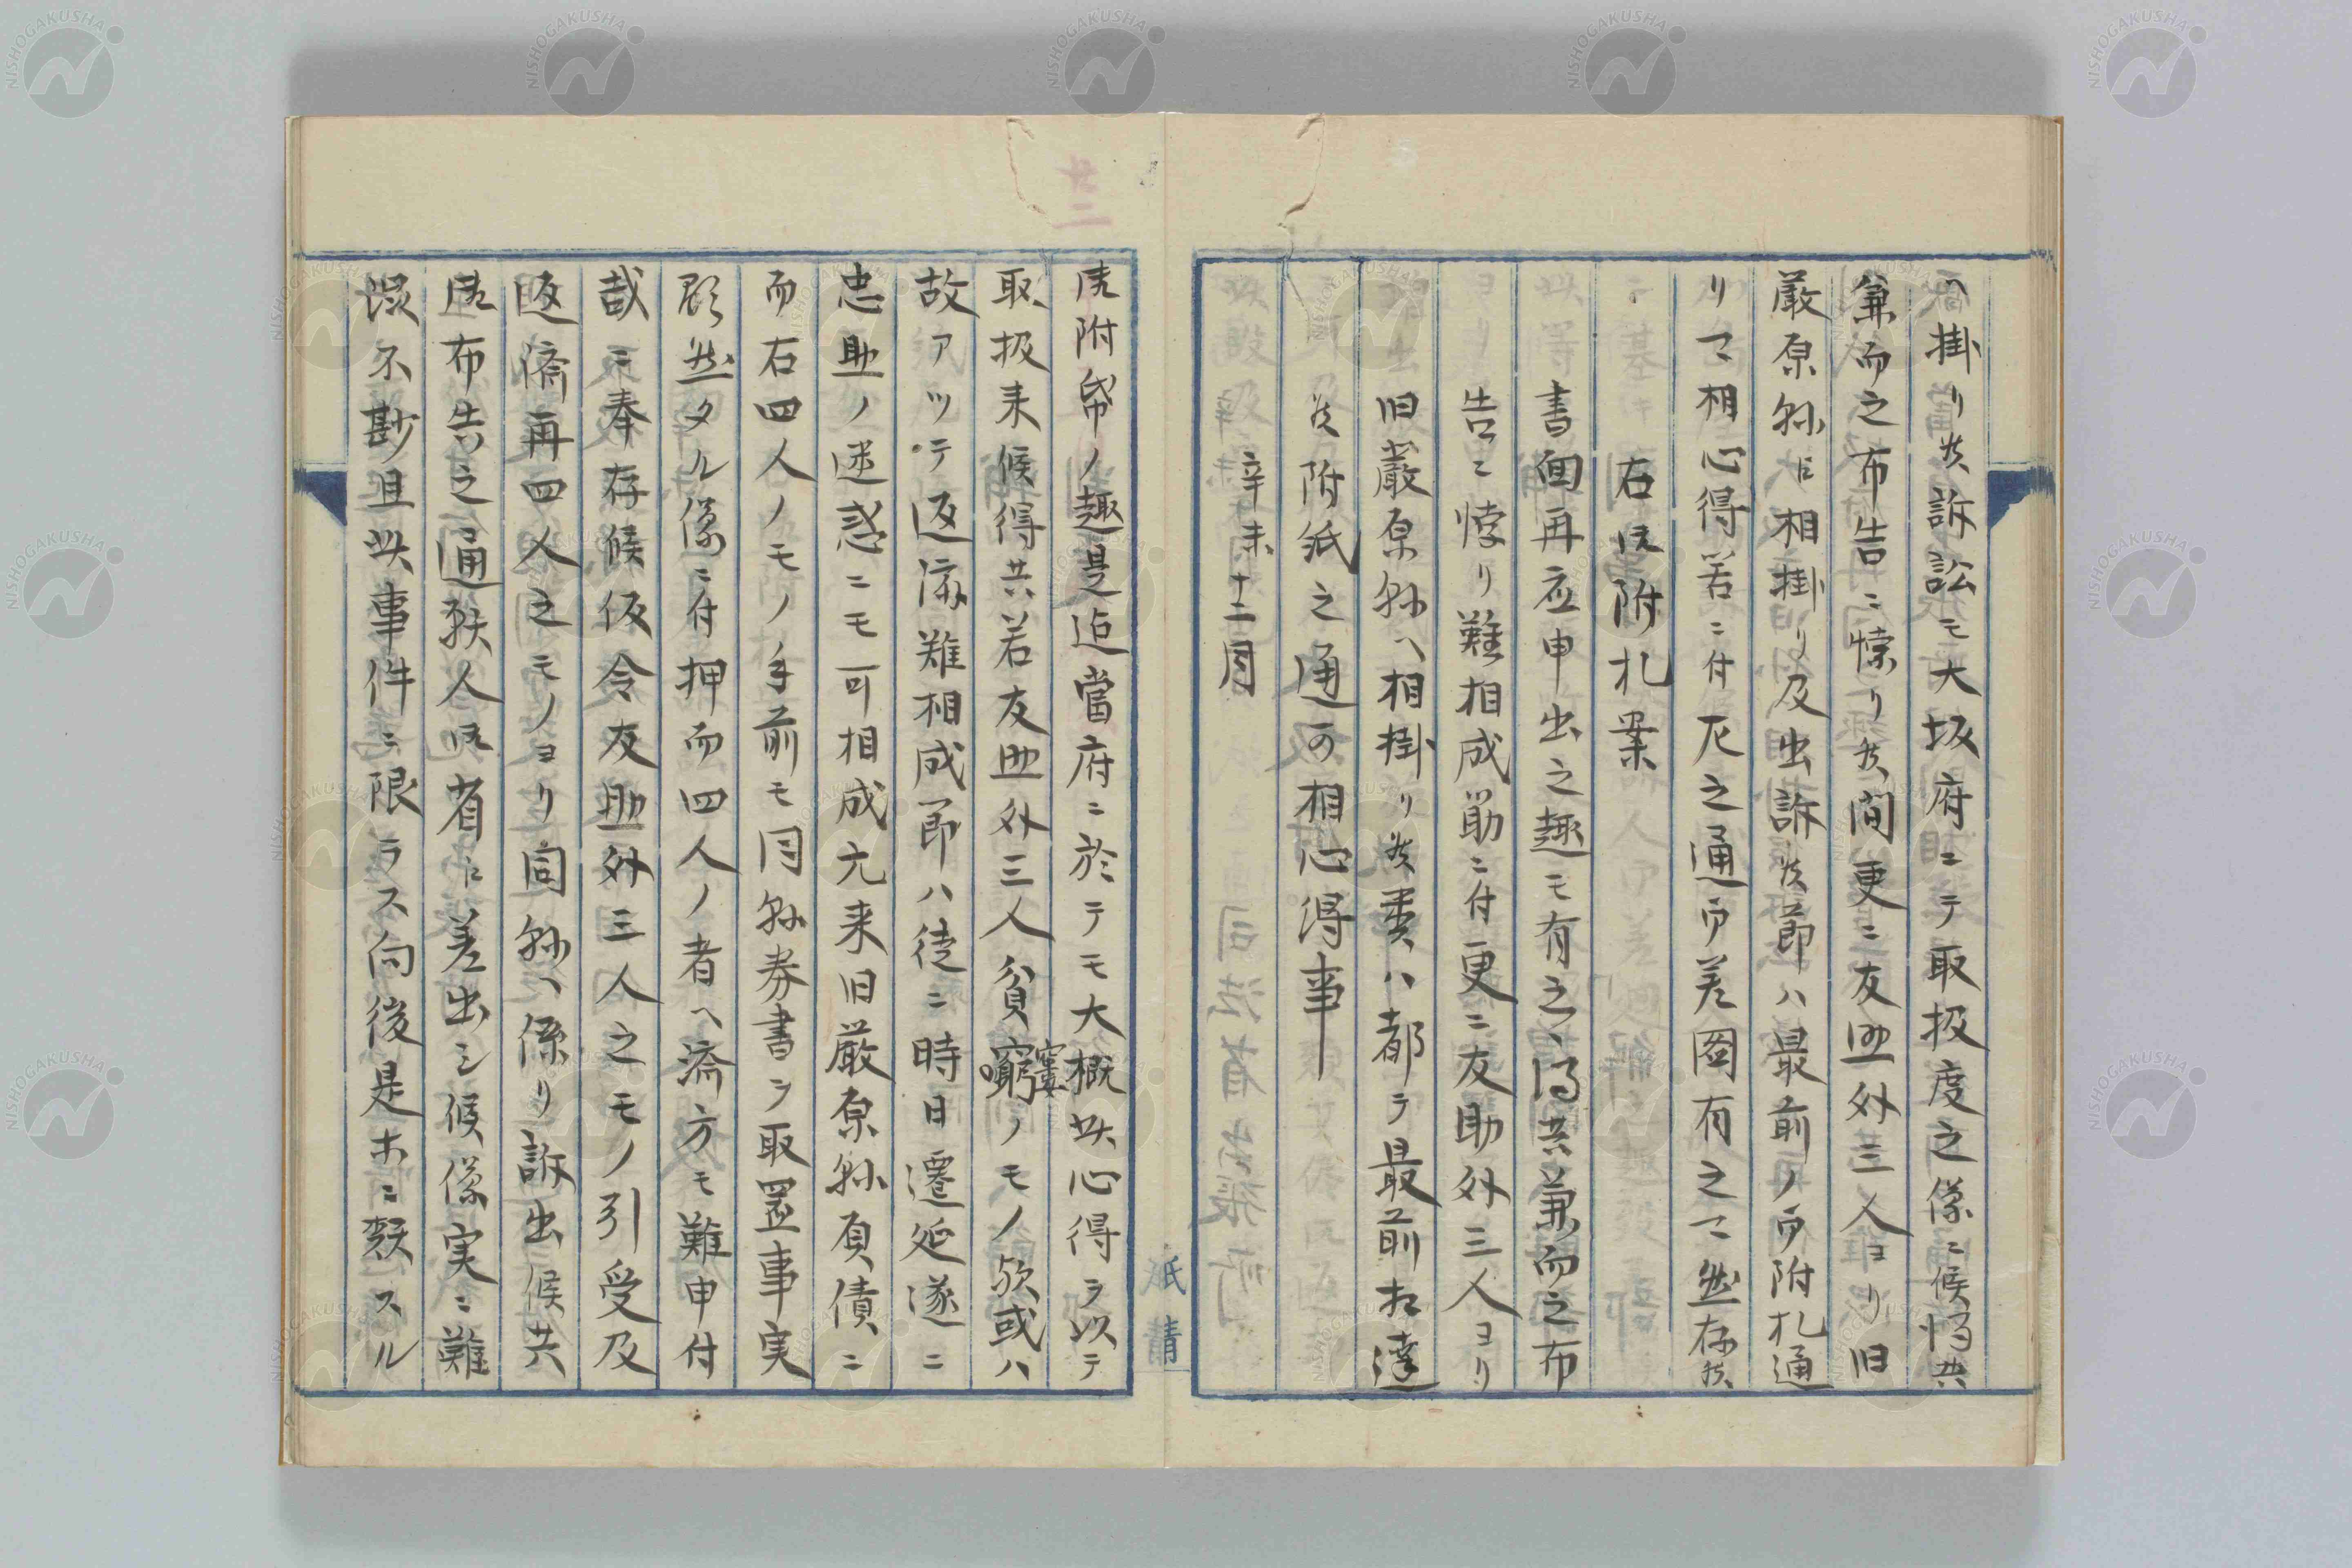 ヘ掛リ候訴訟モ大坂府ニテ取扱度之儀ニ候得共
兼而之布告ニ悖リ候間更ニ友助外三人ヨリ旧
厳原縣ニ相掛リ及出訴候節ハ最前ノ御附札通
リニ相心得若ニ付左之通御差図有之ニ然存候
右江附札案
書面再応申出之趣モ有之得共兼而之布
告ニ悖リ難相成筋ニ付更ニ友助外三人ヨリ
旧厳原縣ヘ相掛リ候義ハ都テ最前相達
候附紙之通可相心得事
辛未十二月
紙精
廿二
虎附帋ノ趣是迄當府ニ於テモ大概此心得ヲ以テ
取扱来候得共若友助外三人貧窮ノモノ欤或ハ
窶
故アツテ返済難相成節ハ徒ニ時日遷延遂ニ
忠助ノ迷惑ニモ可相成元来旧厳原縣負債ニ
而右四人ノモノ手前モ同縣券書ヲ取置事実
顕然タル儀ニ付押而四人ノ者ヘ済方モ難申付
哉ニ奉存候仮令友助外三人之モノ引受及
返済再四人之モノヨリ同縣ヘ係リ訴出候共
御布告之通願人江省ニ差出シ候儀実ニ難
渋不尠且此事件ニ限ラス向後是ホニ類スル